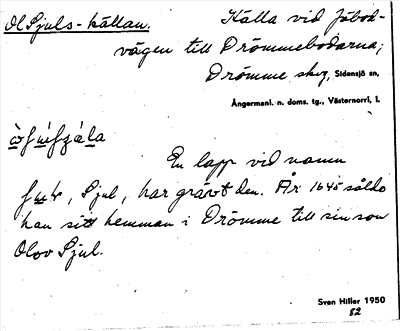 Ol Sjuls-källan.
Källa vid fäbod-
vägen till Drömmebodarna;
Drömme skog, Sidensjö sn,
Ångermanl. n. doms. tg., Västernorrl, l.
En lapp vid namn
, Sjul, har grävt den. År 1645 sålde
han sitt hemman i Drömme till sin son
Olov Sjul.
Sven Hiller 1950
82